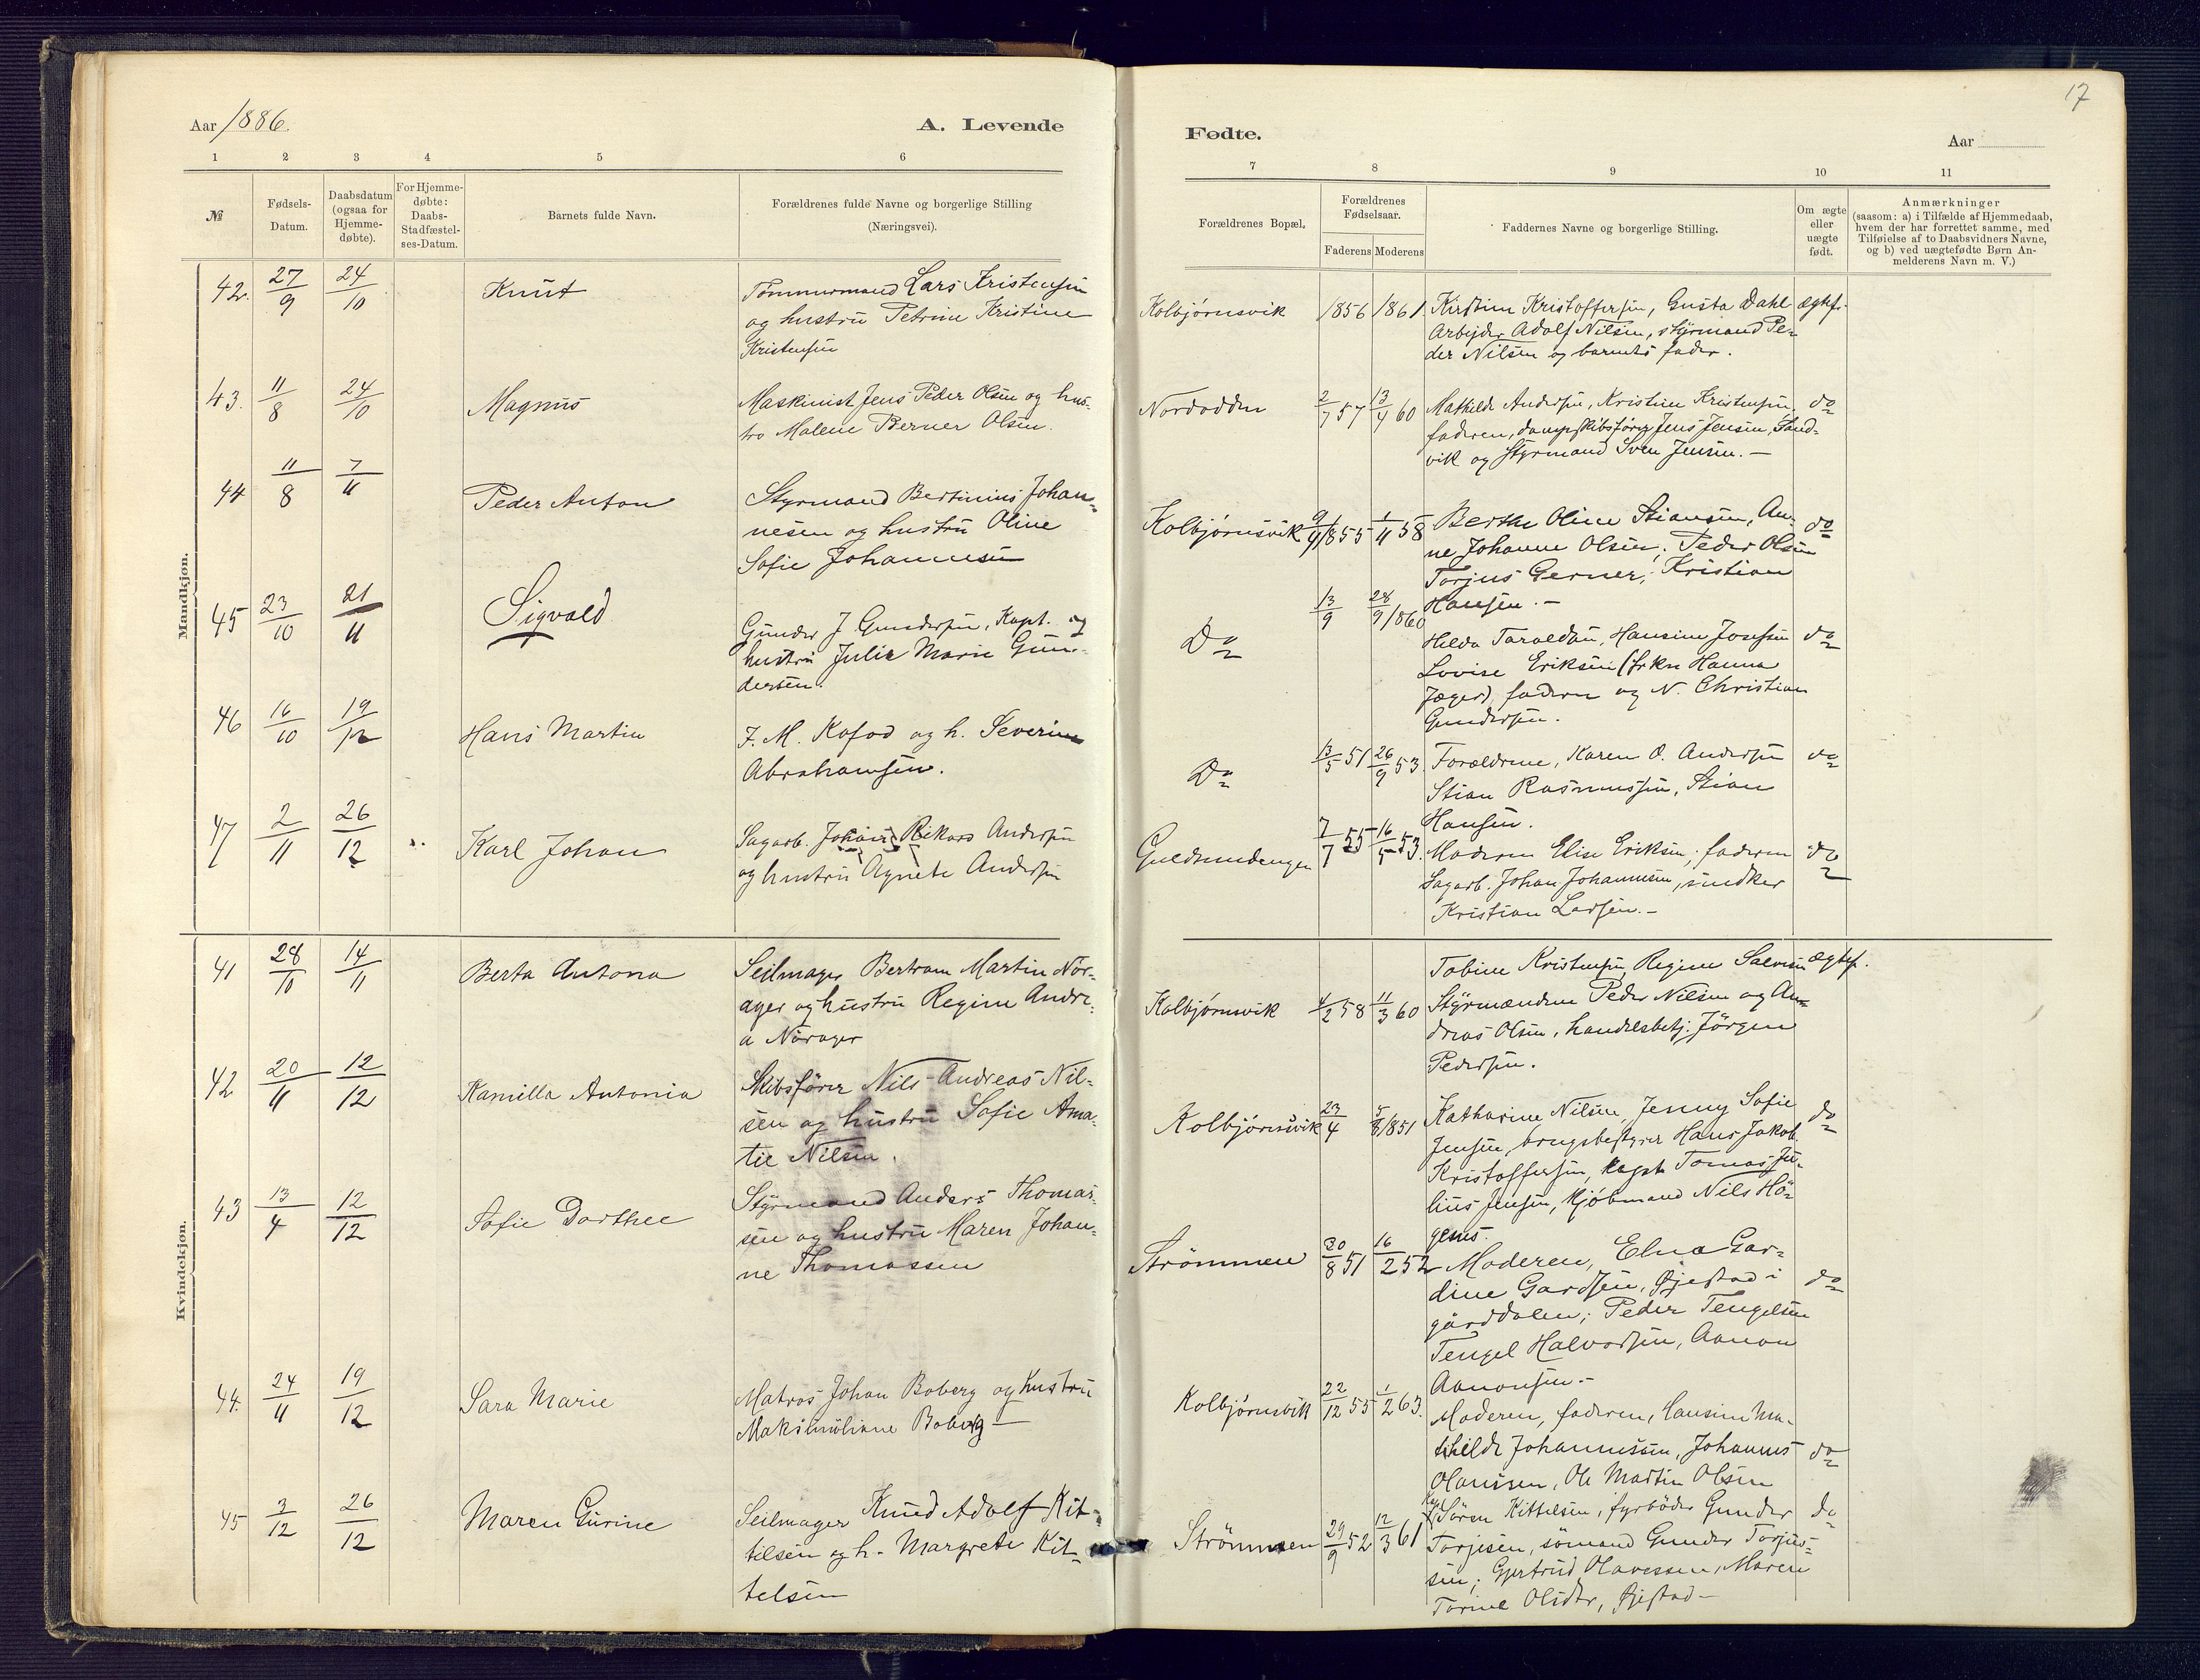 17
Aar 1886. A. Levende Fødte. Aar
1 2 3 4 5 6 7 8 9 10 11
№
Fødsels-
Datum.
Daabsdatum
(ogsaa for
Hjemme-
døbte).
For Hjemme-
døbte:
Daabs-
Stadfæstel-
ses-Datum.
Barnets fulde Navn.
Forældrenes fulde Navne og borgerlige Stilling
(Næringsvei).
Forældrenes Bopæl.
Forældrenes
Fødselsaar.
Faderens Moderens
Faddernes Navne og borgerlige Stilling.
Om ægte
eller
uægte
født.
Anmærkninger
(saasom: a) i Tilfælde af Hjemmedaab,
hvem der har forrettet samme, med
Tilføielse af to Daabsvidners Navne,
og b) ved uægtefødte Børn An-
melderens Navn m. V.)
Mandkjøn.
42. 27/9 24/10 Knut
Tømmermand Lars Kristensen
og hustru Petrine Kristine
Kristensen
Kolbjørnsvik 1856 1861
Kirstine Kristoffersen, Gusta Dahl ægtef.
Arbejder Adolf Nilsen, styrmand Pe-
der Nilsen og barnets fader.
43. 11/8 24/10 Magnus
Maskinist Jens Peder Olsen og hus-
tro Malene Berner Olsen.
Nordodden 2/7 57 13/4 60
Mathilde Andersen, Kristine Kristensen, do
faderen, dampskibsfører Jens Jensen, Sand-
vik og Styrmand Sven Jensen. —
44 11/8 7/11 Peder Anton
Styrmand Bertinius Johan-
nesen og hustru Oline
Sofie Johannesen
Kolbjørnsvik 9/9 1855 1/11 58
Berthe Oline Stiansen, An- do
ne Johanne Olsen; Peder Olsen
Torjus Gerner; Kristian
Hansen. —
45 23/10 21/11 Sigvald
Gunder J. Gundersen, Kapt. og
hustru Julie Marie Gun-
dersen.
Do 13/9 28/9 1860
Hilda Taraldsen, Hansine Josefsen do
Lovise Eriksen (frkn Hanna
Jæger), faderen og N. Christian
Gundersen.
46 16/10 19/12 Hans Martin
F. M. Kofod og h. Severine
Abrahamsen.
Do 13/5 51 26/9 53.
Forældrene, Karen O. Andersen do
Stian Rasmussen, Stian
Hansen.
47 2/11 26/12 Karl Johan
Sagarb. Johan Rikard Andersen
og hustru Agnete Andersen
Guldsmedengen 7/7 55 16/5 53.
Moderen Elise Eriksen; faderen do
Sagarb. Johan Johannesen, snedker
Kristian Larsen. —
Kvindekjøn.
41 28/10 14/11 Berta Antona
Seilmager Bertram Martin Nör-
ager og hustru Regine Andre-
a Nörager
Kolbjørnsvik 4/2 58 11/3 60
Tobine Kristensen, Regine Salvesen ægtef.
Styrmændene Peder Nilsen og An-
dreas Olsen, handelsbetj. Jörgen
Pedersen.
42 20/11 12/12 Kamilla Antonia
Skibsfører Nils Andreas Nil-
sen og hustru Sofie Ama-
lie Nilsen.
Kolbjørnsvik 23/4 5/8 1851
Katharine Nilsen, Jenny Sofie do
Jensen, brugsbestyrer Hans Jakob
Kristoffersen, kapt. Tomas Ju-
lius Jensen, Kjøbmand Nils Hö-
genes.
43 13/4 12/12 Sofie Dorthee
Styrmand Anders Thomas-
sen og hustru Maren Johan-
ne Thomassen
Strömmen 30/8 51 16/2 52
Moderen, Elna Gar-
dine Gardsen, Øjestad i do
gårddalen; Peder Tengelsen
Tengel Halvorsen, Aanon
Aanonsen. —
44. 24/11 19/12 Sara Marie
Matros Johan Boberg og hustru
Maksimiliane Boberg —
Kolbjørnsvik 22/12 55 1/2 63.
Moderen, faderen, Hansine Ma-
thilde Johannesen, Johannes do
Olanssen, Ole Martin Olsen
45 3/12 26/12 Maren Gurine
Seilmager Knud Adolf Kit-
tilsen og h. Margrete Kit-
telsen
Strömmen 29/9 52 12/3 61
Sören Kittelsen, fyrböder Gunder do
Torjesen, sømand Gunder Torjus-
sen; Gjertrud Olavessen, Maren
Torine Olsdtr, Øjestad —